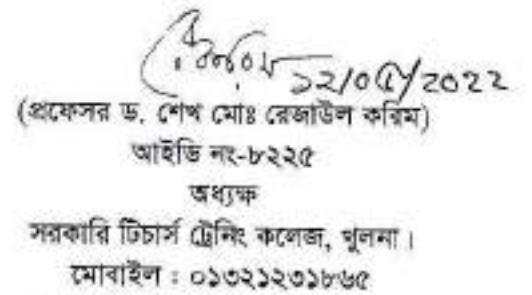 ১২/০৫/2022
(প্রফেসর ড. শেখ মোঃ রেজাউল করিম)
আইডি নং-৮২২৫
অধ্যক্ষ
সরকারি টিচার্স ট্রেনিং কলেজ, খুলনা।
মোবাইল : ০১৩২১২৩১৮৬৫